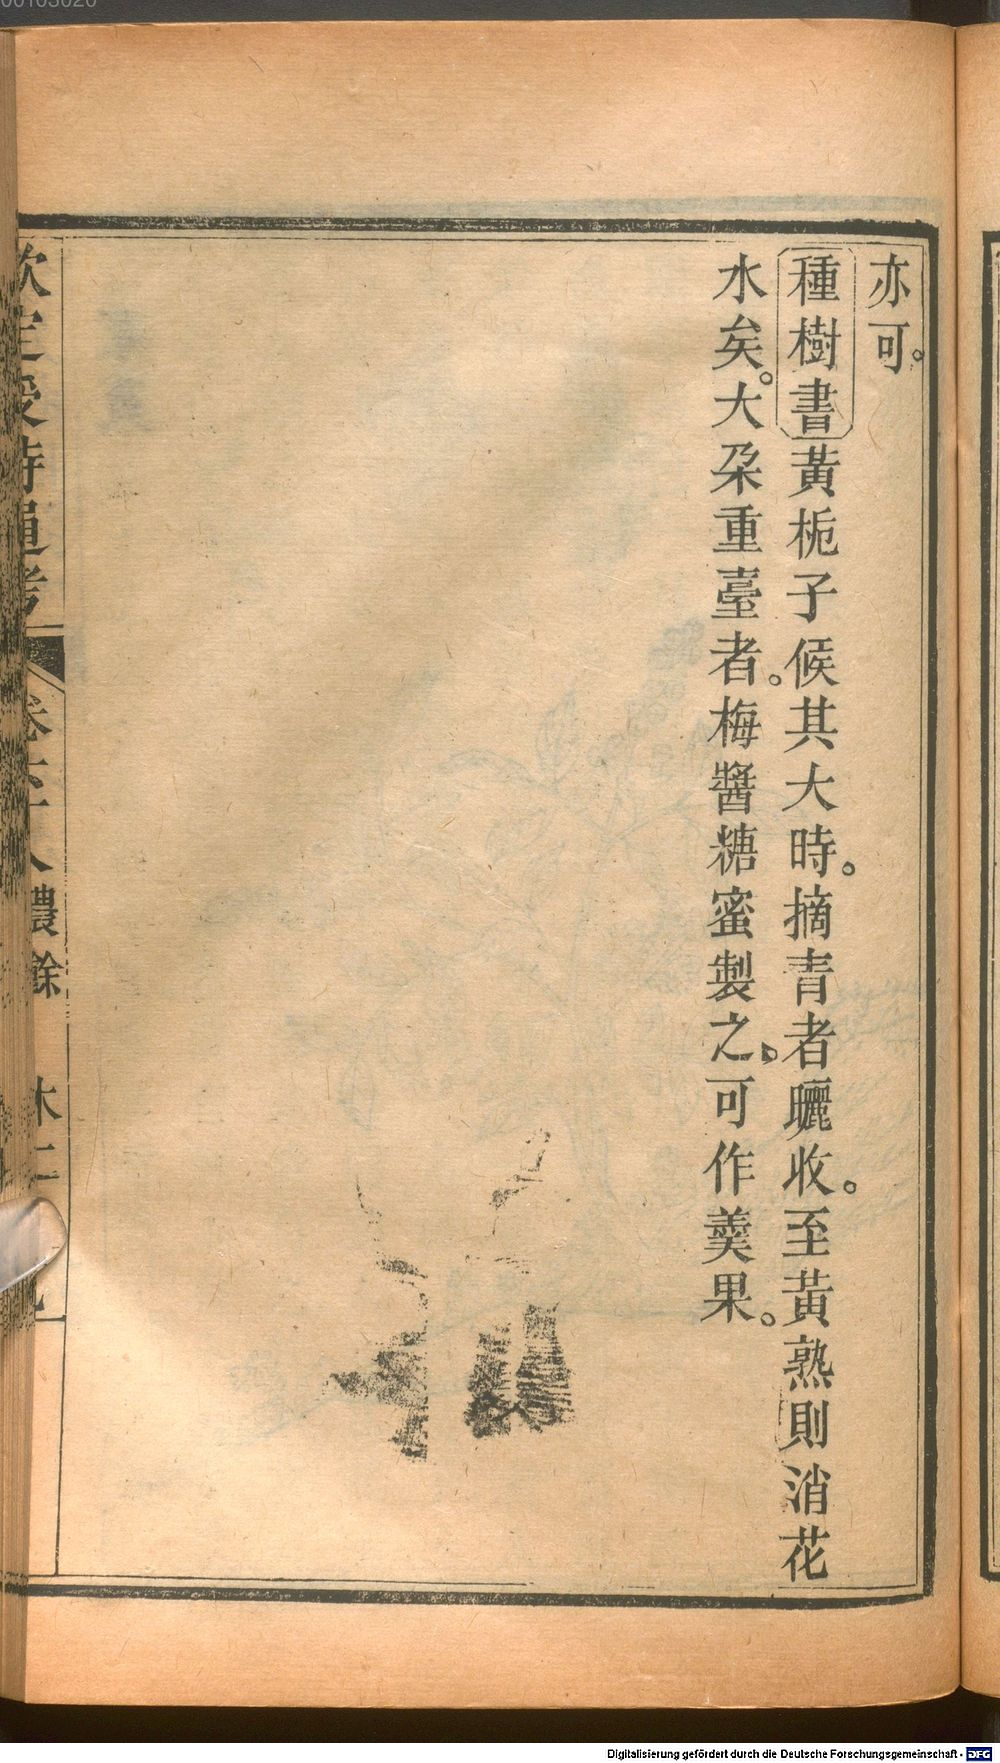 亦可。
種樹書黃梔子候其大時。摘青者曬收。至黃熟則消花
水矣。大朶重臺者。梅醬糖蜜製之、可作羹果。
欽定授時通考 卷六十八農餘 木二
Digitalisierung gefördert durch die Deutsche Forschungsgemeinschaft - DFG